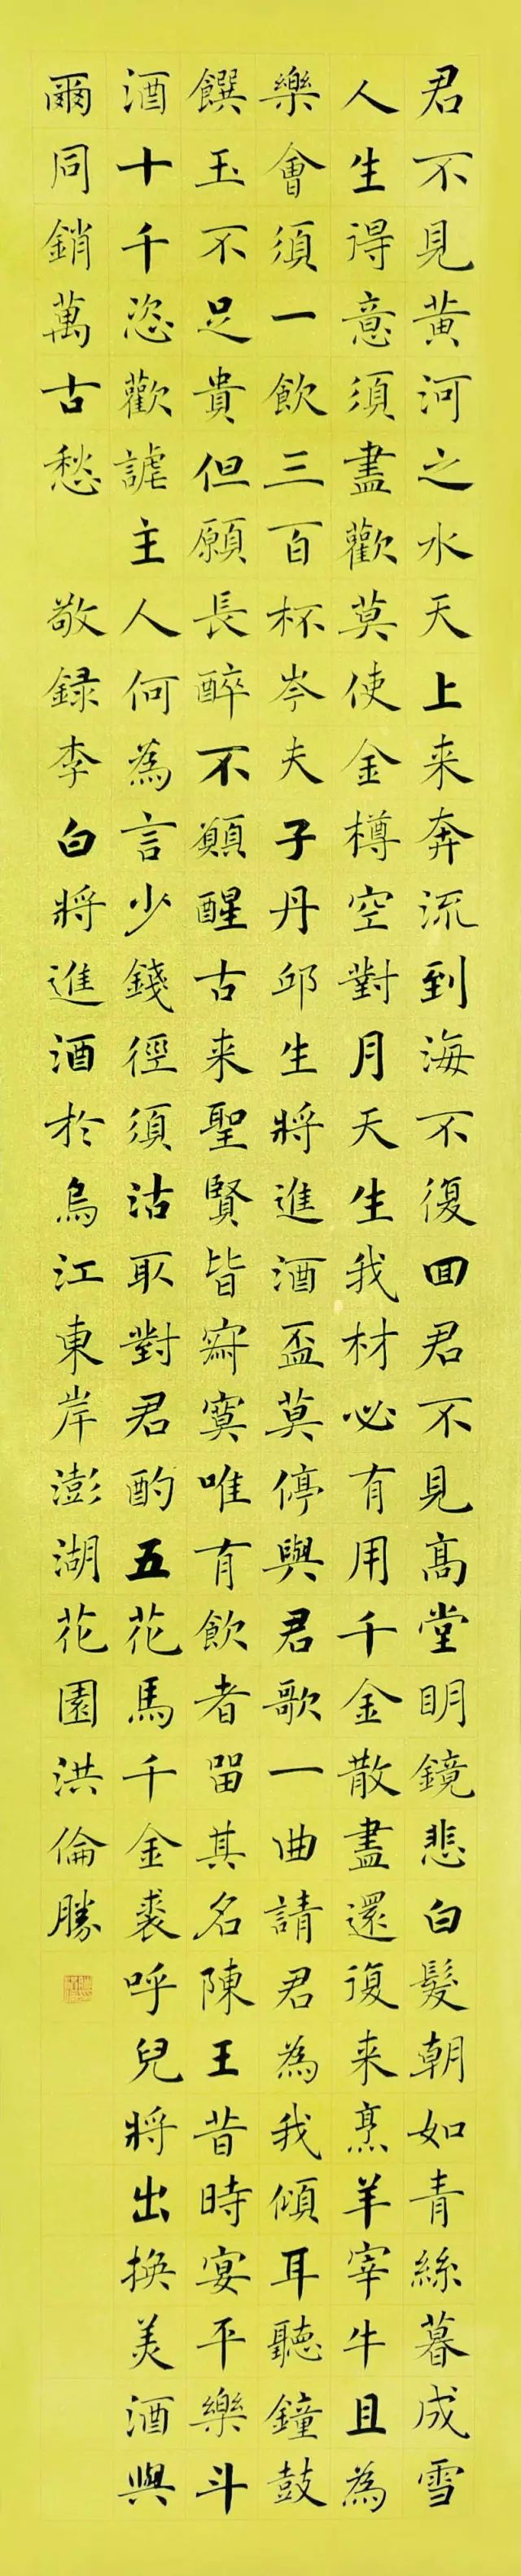 君不見黃河之水天上来奔流到海不復回君不見高堂明鏡悲白髮朝如青絲暮成雪
人生得意須盡歡莫使金樽空對月天生我材必有用千金散盡還復来烹羊宰牛且為
樂會須一飲三百杯岑夫子丹邱生將進酒盃莫停與君歌一曲請君為我傾耳聽鐘鼓
饌玉不足貴但願長醉不願醒古来聖賢皆寂寞唯有飲者留其名陳王昔時宴平樂斗
酒十千恣歡謔主人何為言少錢徑須沽取對君酌五花馬千金裘呼兒將出換美酒與
爾同銷萬古愁 敬録李白將進酒於烏江東岸澎湖花園洪倫勝